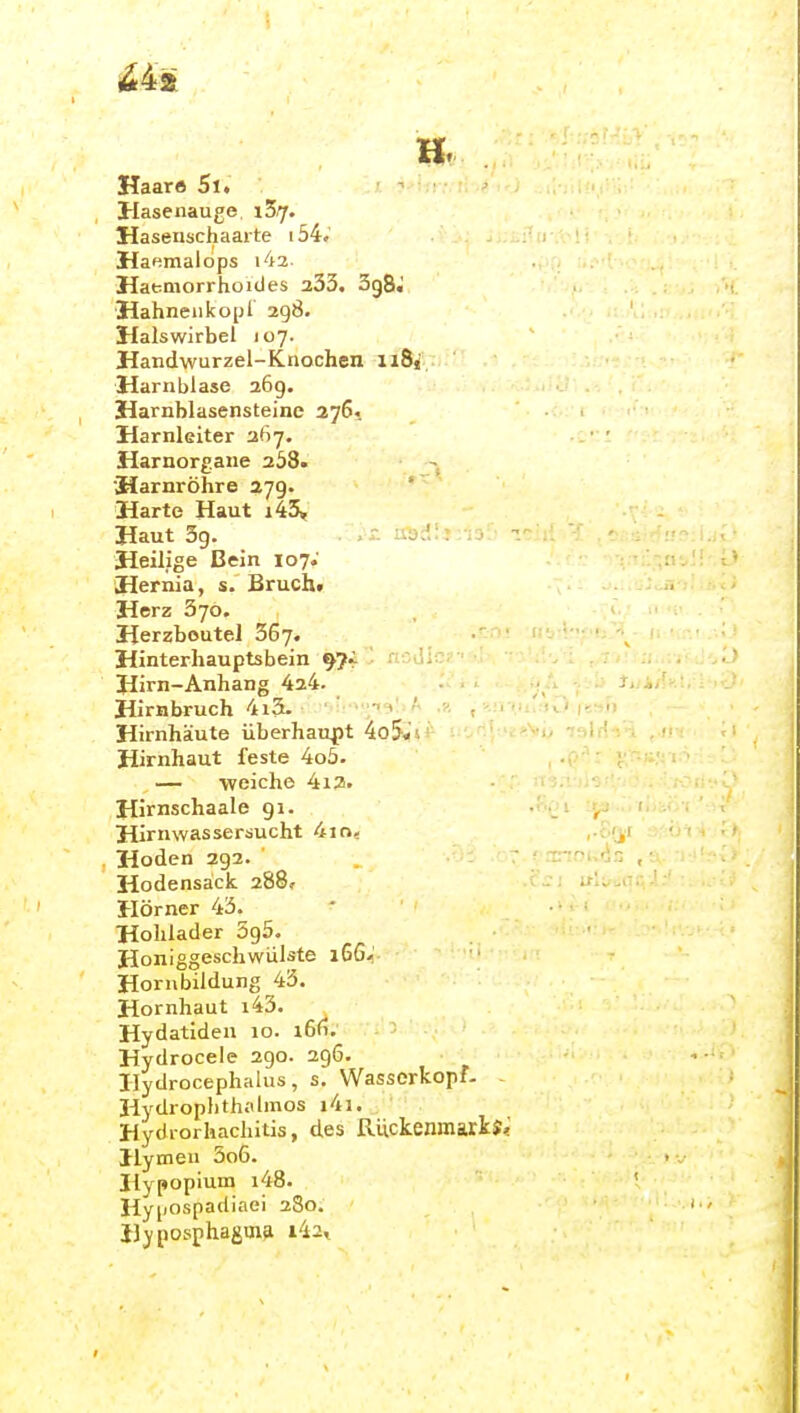 442
H.
Haare 51.
Hasenauge 137.
Hasenschaarte 154.
Haemalops 142.
Haemorrhoides 233. 398.
Hahnenkopf 298.
Halswirbel 107.
Handwurzel-Knochen 118.
Harnblase 269.
Harnblasensteine 276.
Harnleiter 267.
Harnorgane 258.
Harnröhre 279.
Harte Haut 143.
Haut 39.
Heilige Bein 107.
Hernia, s. Bruch.
Herz 370.
Herzbeutel 367.
Hinterhauptsbein 97.
Hirn-Anhang 424.
Hirnbruch 413.
Hirnhäute überhaupt 405.
Hirnhaut feste 405.
— weiche 412.
Hirnschaale 91.
Hirnwassersucht 410.
Hoden 292.
Hodensack 288.
Hörner 43.
Hohlader 395.
Honiggeschwülste 166.
Hornbildung 43.
Hornhaut 143.
Hydatiden 10. 166.
Hydrocele 290. 296.
Hydrocephalus, s. Wasserkopf.
Hydrophthalmos 141.
Hydrorhachitis, des Rückenmarks.
Hymen 306.
Hypopium 148.
Hypospadiaei 280.
Hyposphagma 142.